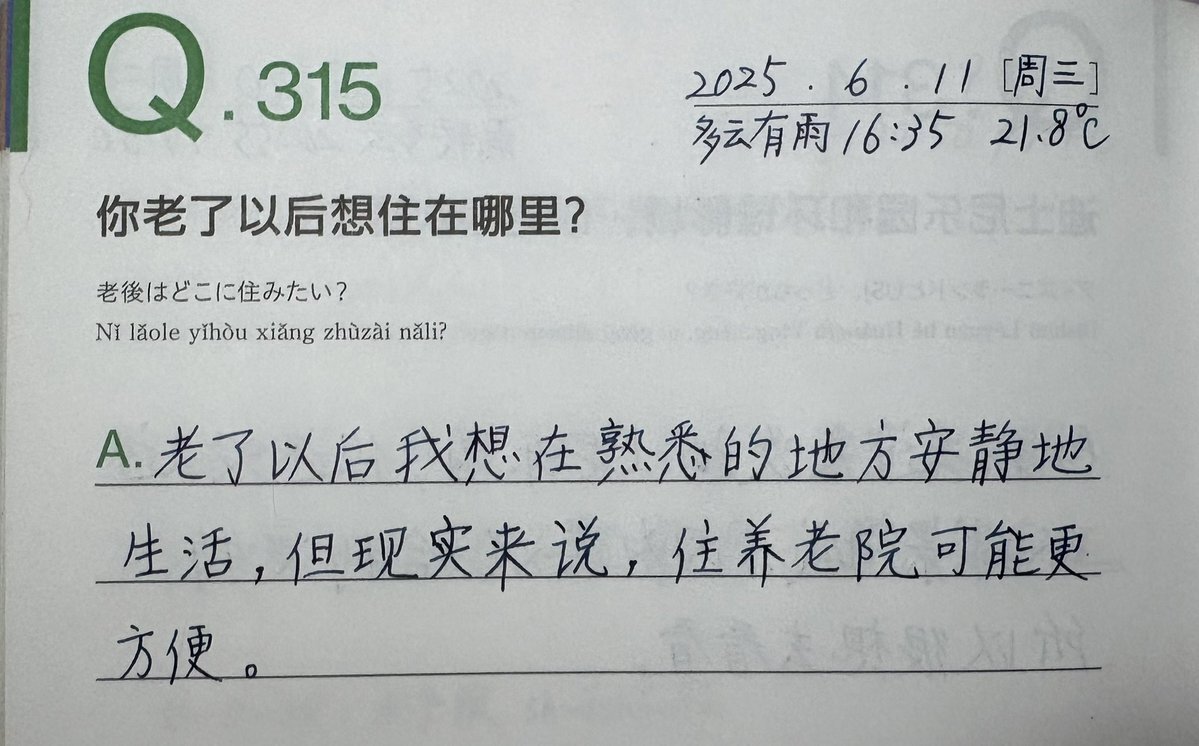 Q.315
2025.6.11 [周三]
多云有雨 16:35 21.8℃
你老了以后想住在哪里?
老後はどこに住みたい?
Nǐ lǎole yǐhòu xiǎng zhùzài nǎli?
A. 老了以后我想在熟悉的地方安静地
生活,但现实来说,住养老院可能更
方便。